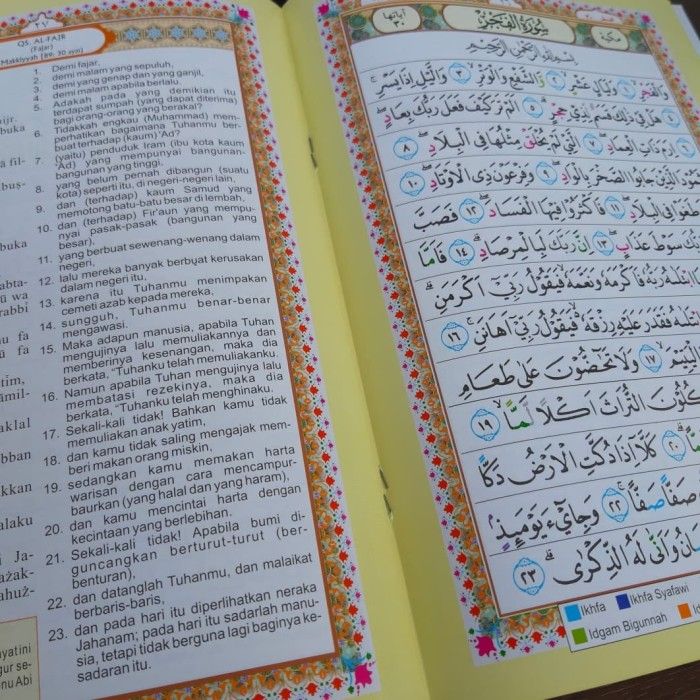 ٣٧
QS. AL-FAJR
(Fajar)
Makkiyyah [89: 30 ayat]
1. Demi fajar,
2. demi malam yang sepuluh,
3. demi yang genap dan yang ganjil,
4. demi malam apabila berlalu.
5. Adakah pada yang demikian itu
terdapat sumpah (yang dapat diterima)
bagi orang-orang yang berakal?
6. Tidakkah engkau (Muhammad) mem-
perhatikan bagaimana Tuhanmu ber-
buat terhadap (kaum) 'Ad?
7. (yaitu) penduduk Iram (ibu kota kaum
'Ad) yang mempunyai bangunan-
bangunan yang tinggi,
8. yang belum pernah dibangun (suatu
kota) seperti itu, di negeri-negeri lain,
9. dan (terhadap) kaum Samud yang
memotong batu-batu besar di lembah,
10. dan (terhadap) Fir'aun yang mempu-
nyai pasak-pasak (bangunan yang
besar).
11. yang berbuat sewenang-wenang dalam
negeri,
12. lalu mereka banyak berbuat kerusakan
dalam negeri itu.
13. karena itu Tuhanmu menimpakan
cemeti azab kepada mereka,
14. sungguh, Tuhanmu benar-benar
mengawasi.
15. Maka adapun manusia, apabila Tuhan
mengujinya lalu memuliakannya dan
memberinya kesenangan, maka dia
berkata, "Tuhanku telah memuliakanku.
16. Namun apabila Tuhan mengujinya lalu
membatasi rezekinya, maka dia
berkata, "Tuhanku telah menghinaku.
17. Sekali-kali tidak! Bahkan kamu tidak
memuliakan anak yatim,
18. dan kamu tidak saling mengajak mem-
beri makan orang miskin,
19. sedangkan kamu memakan harta
warisan dengan cara mencampur-
baurkan (yang halal dan yang haram),
20. dan kamu mencintai harta dengan
kecintaan yang berlebihan.
21. Sekali-kali tidak! Apabila bumi di-
guncangkan berturut-turut (ber-
benturan),
22. dan datanglah Tuhanmu, dan malaikat
berbaris-baris,
23. dan pada hari itu diperlihatkan neraka
Jahanam; pada hari itu sadarlah manu-
sia, tetapi tidak berguna lagi baginya ke-
sadaran itu.
آياتها
٣٠
سُورَةُ الفَجْرِ
مكية
بِسْمِ اللهِ الرَّحْمٰنِ الرَّحِيْمِ
وَالْفَجْرِ ١ وَلَيَالٍ عَشْرٍ ٢ وَالشَّفْعِ وَالْوَتْرِ ٣ وَالَّيْلِ اِذَا يَسْرِ
٤ هَلْ فِيْ ذٰلِكَ قَسَمٌ لِّذِيْ حِجْرٍ ٥ اَلَمْ تَرَ كَيْفَ فَعَلَ رَبُّكَ بِعَادٍ
٦ اِرَمَ ذَاتِ الْعِمَادِ ٧ الَّتِيْ لَمْ يُخْلَقْ مِثْلُهَا فِى الْبِلَادِ ٨
الَّذِيْنَ جَابُوا الصَّخْرَ بِالْوَادِ ٩ وَفِرْعَوْنَ ذِى الْاَوْتَادِ ١٠
طَغَوْا فِى الْبِلَادِ ١١ فَاَكْثَرُوْا فِيْهَا الْفَسَادَ ١٢ فَصَبَّ
سَوْطَ عَذَابٍ ١٣ اِنَّ رَبَّكَ لَبِالْمِرْصَادِ ١٤ فَاَمَّا
ابْتَلٰىهُ رَبُّهٗ فَاَكْرَمَهٗ وَنَعَّمَهٗ فَيَقُوْلُ رَبِّيْٓ اَكْرَمَنِ
ابْتَلٰىهُ فَقَدَرَ عَلَيْهِ رِزْقَهٗ فَيَقُوْلُ رَبِّيْٓ اَهَانَنِ ١٦
الْيَتِيْمَ ١٧ وَلَا تَحٰۤضُّوْنَ عَلٰى طَعَامِ
تَأْكُلُوْنَ التُّرَاثَ اَكْلًا لَّمًّا ١٩
٢٠ كَلَّآ اِذَا دُكَّتِ الْاَرْضُ دَكًّا
صَفًّا صَفًّا ٢٢ وَجِايْۤءَ يَوْمَىِٕذٍ
وَاَنّٰى لَهُ الذِّكْرٰى ٢٣
Ikhfa
Ikhfa Syafawi
Idgam Bigunnah